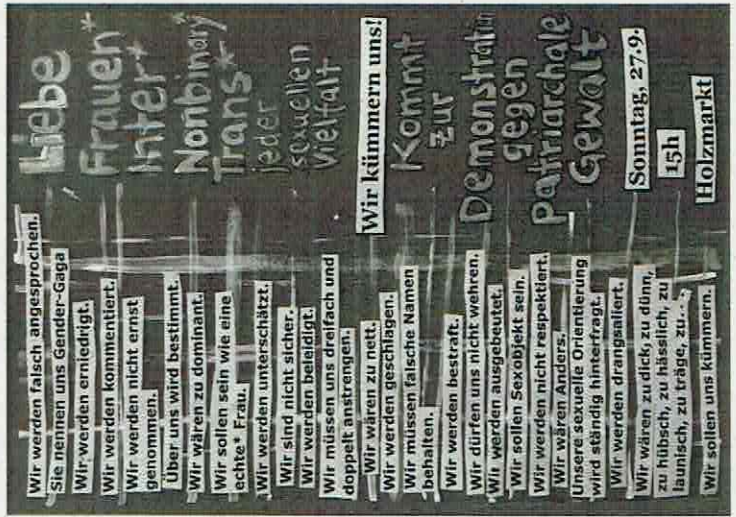 Liebe
Frauen*
Inter*
Nonbinary*
Trans*
jeder
sexuellen
Vielfalt
Wir kümmern uns!
Kommt
zur
Demonstration
gegen
Patriarchale
Gewalt
Sonntag, 27.9.
15h
Holzmarkt
Wir werden falsch angesprochen.
Sie nennen uns Gender-Gaga
Wir werden erniedrigt.
Wir werden kommentiert.
Wir werden nicht ernst
genommen.
Über uns wird bestimmt.
Wir wären zu dominant.
Wir sollen sein wie eine
echte* Frau.
Wir werden unterschätzt.
Wir sind nicht sicher.
Wir werden beleidigt.
Wir müssen uns dreifach und
doppelt anstrengen.
Wir wären zu nett.
Wir werden geschlagen.
Wir müssen falsche Namen
behalten.
Wir werden bestraft.
Wir dürfen uns nicht wehren.
Wir werden ausgebeutet.
Wir sollen Sexobjekt sein.
Wir werden nicht respektiert.
Wir wären Anders.
Unsere sexuelle Orientierung
wird ständig hinterfragt.
Wir werden drangsaliert.
Wir wären zu dick, zu dünn,
zu hübsch, zu hässlich, zu
launisch, zu träge, zu...
Wir sollen uns kümmern.